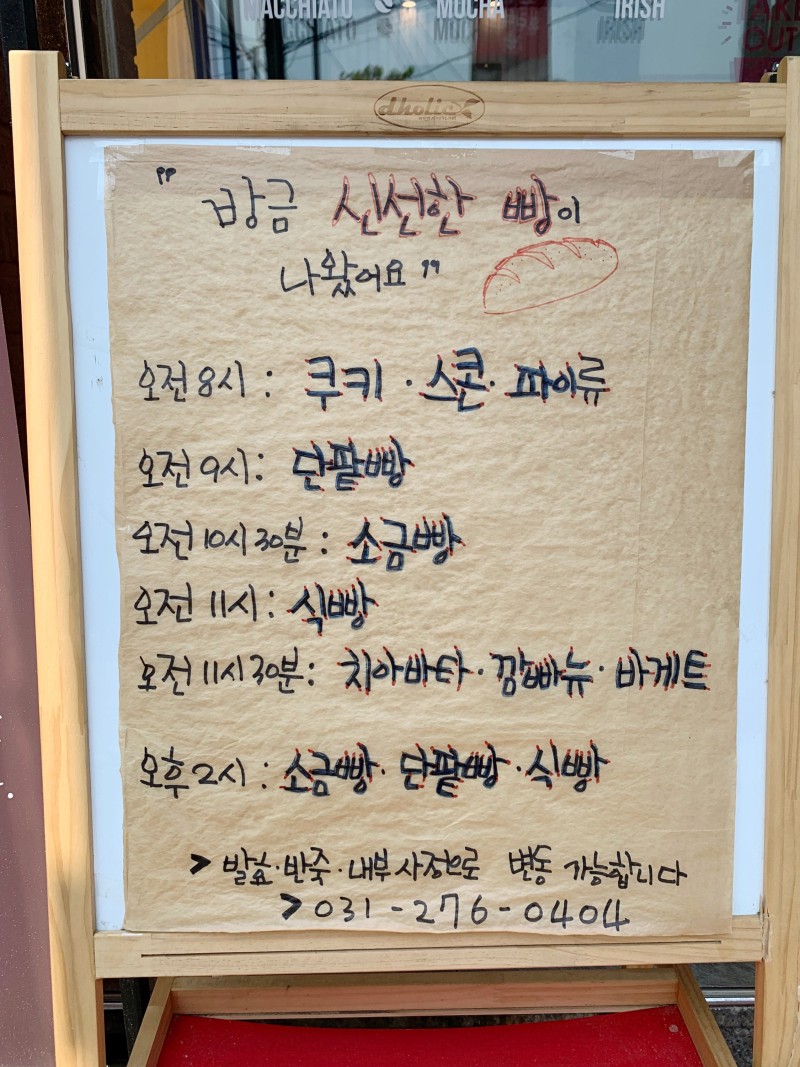 MACCHIATO MOCHA IRISH TAKE OUT
dholic
" 방금 신선한 빵이
나왔어요 "
오전 8시 : 쿠키 · 스콘 · 파이류
오전 9시 : 단팥빵
오전 10시 30분 : 소금빵
오전 11시 : 식빵
오전 11시 30분 : 치아바타 · 깜빠뉴 · 바게트
오후 2시 : 소금빵 · 단팥빵 · 식빵
> 발효 · 반죽 · 내부 사정으로 변동 가능합니다
> 031 - 276 - 0404